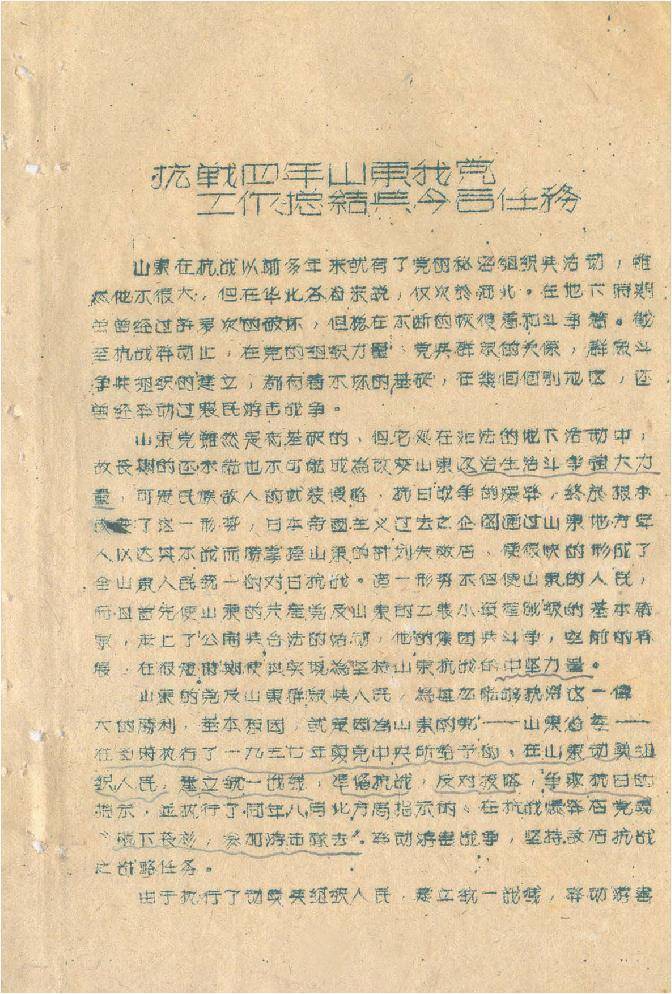 抗戰四年山東我党
工作总結与今后任務
山東在抗战以前多年来就有了党的秘密组织与活动，雖
然他不很大，但在华北各省来説，仅次於河北。在地下時期
虽曾经过許多次的破坏，但都在不断的恢復着和斗争着。截
至抗战發动止，在党的组织力量、党与群眾的关係，群眾斗
争与组织的建立，都有着不坏的基础，在幾個個别地区，还
曾经举动过農民游击战争。
山東党雖然是有基础的，但它是在非法的地下活动中，
故長期的还不能也不可能成為改变山東政治生活斗争的大力
量，可是民族敌人的武装侵略，抗日战争的爆發，終於根本
改变了这一形势，日本帝國主义过去之企圖通过山東地方軍
人以达其不战而勝掌握山東的計划失敗后，便很快的形成了
全山東人民統一的对日抗战。這一形势不但使山東的人民，
而且首先使山東的共產党及山東的工農小資產階級的基本群
眾，走上了公開与合法的地位，他的集團与斗争，空前的發
展，在很短的時期便真实現為坚持山東抗战的中坚力量。
山東的党及山東群眾与人民，為甚么能够执得这一偉
大的勝利，基本原因，就是因為山東的党——山東省委——
在当時执行了一九三七年夏党中央所给予的，在山東动员组
织人民，建立統一战线，準备抗战，反对投降，争取抗日的
指示，並执行了同年八月北方局指示的，在抗战爆發后党员
“脱下長衫，参加游击隊去”，举动游击战争，坚持敌后抗战
之战略任务。
由于执行了动员与组织人民，建立統一战线，發动游击